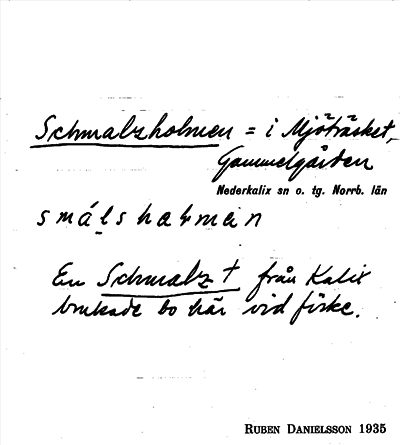 Schmalzholmen = i Mjöträsket,
Gammelgården
Nederkalix sn o. tg. Norrb. län
smálshoɫmen
En Schmalz † från Kalix
brukade bo här vid fiske.
RUBEN DANIELSSON 1935